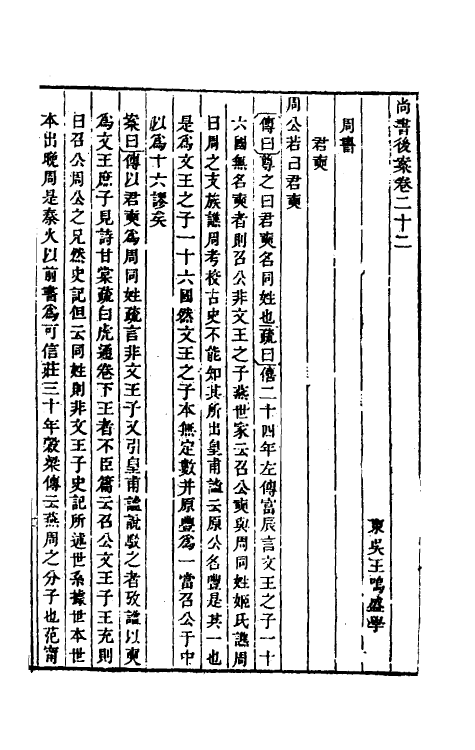 尚書後案卷二十二
東吳王鳴盛學
周書
君奭
周公若曰君奭
傳曰尊之曰君奭名同姓也疏曰僖二十四年左傳富辰言文王之子一十
六國無名奭者則召公非文王之子燕世家云召公奭與周同姓姬氏譙周
曰周之支族譙周考校古史不能知其所出皇甫謐云原公名豐是其一也
是為文王之子一十六國然文王之子本無定數并原豐為一當召公于中
以為十六謬矣
案曰傳以君奭為周同姓疏言非文王子又引皇甫謐說駁之者攷謐以奭
為文王庶子見詩甘棠疏白虎通卷下王者不臣篇云召公文王子王充則
曰召公周公之兄然史記但云同姓則非文王子史記所述世系據世本世
本出晚周是秦火以前書為可信莊三十年穀梁傳云燕周之分子也范甯